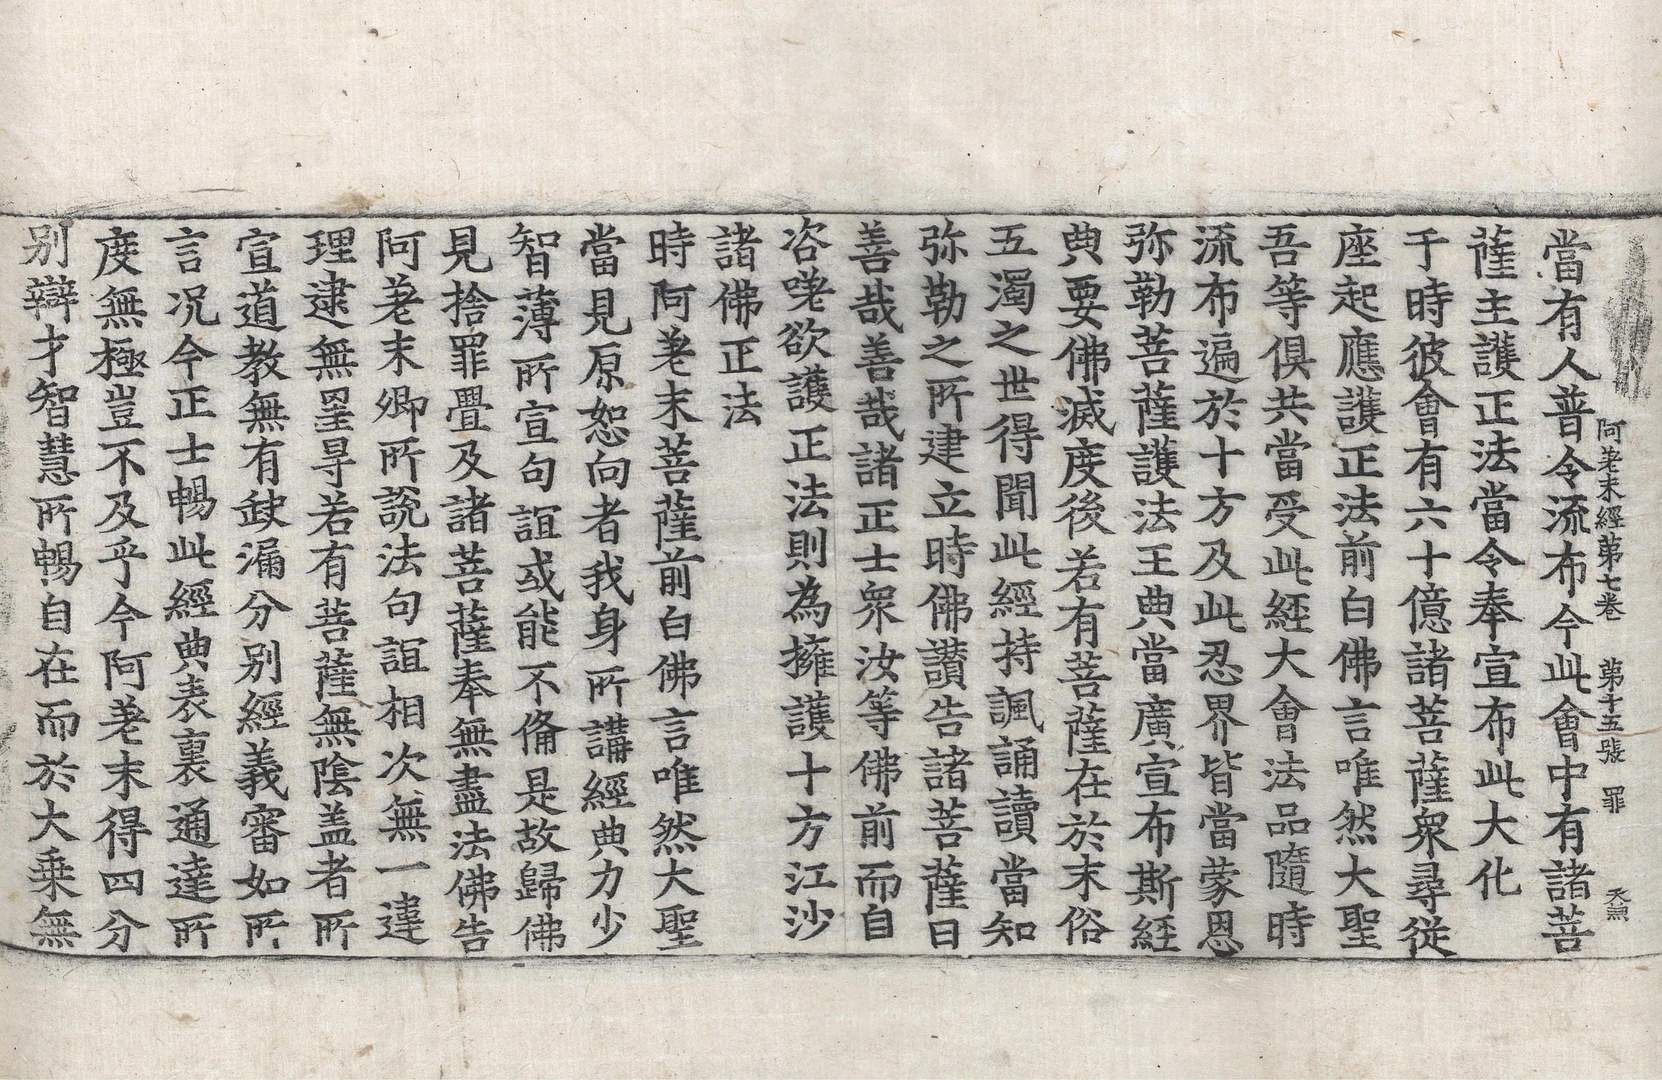 阿差末經第七卷　第十五張　罪　天無
當有人普令流布今此會中有諸菩
薩主護正法當令奉宣布此大化
于時彼會有六十億諸菩薩眾尋從
座起應護正法前白佛言唯然大聖
吾等俱共當受此經大會法品隨時
流布遍於十方及此忍界皆當蒙恩
弥勒菩薩護法王典當廣宣布斯經
典要佛滅度後若有菩薩在於末俗
五濁之世得聞此經持諷誦讀當知
弥勒之所建立時佛讚告諸菩薩曰
善哉善哉諸正士眾汝等佛前而自
咨嗟欲護正法則為擁護十方江沙
諸佛正法
時阿差末菩薩前白佛言唯然大聖
當見原恕向者我身所講經典力少
智薄所宣句誼或能不俻是故歸佛
見捨罪舋及諸菩薩奉無盡法佛告
阿差末卿所說法句誼相次無一違
理逮無罣㝵若有菩薩無陰盖者所
宣道教無有缺漏分别經義審如所
言况今正士暢此經典表裏通達所
度無極豈不及乎今阿差末得四分
别辯才智慧所暢自在而於大乘無